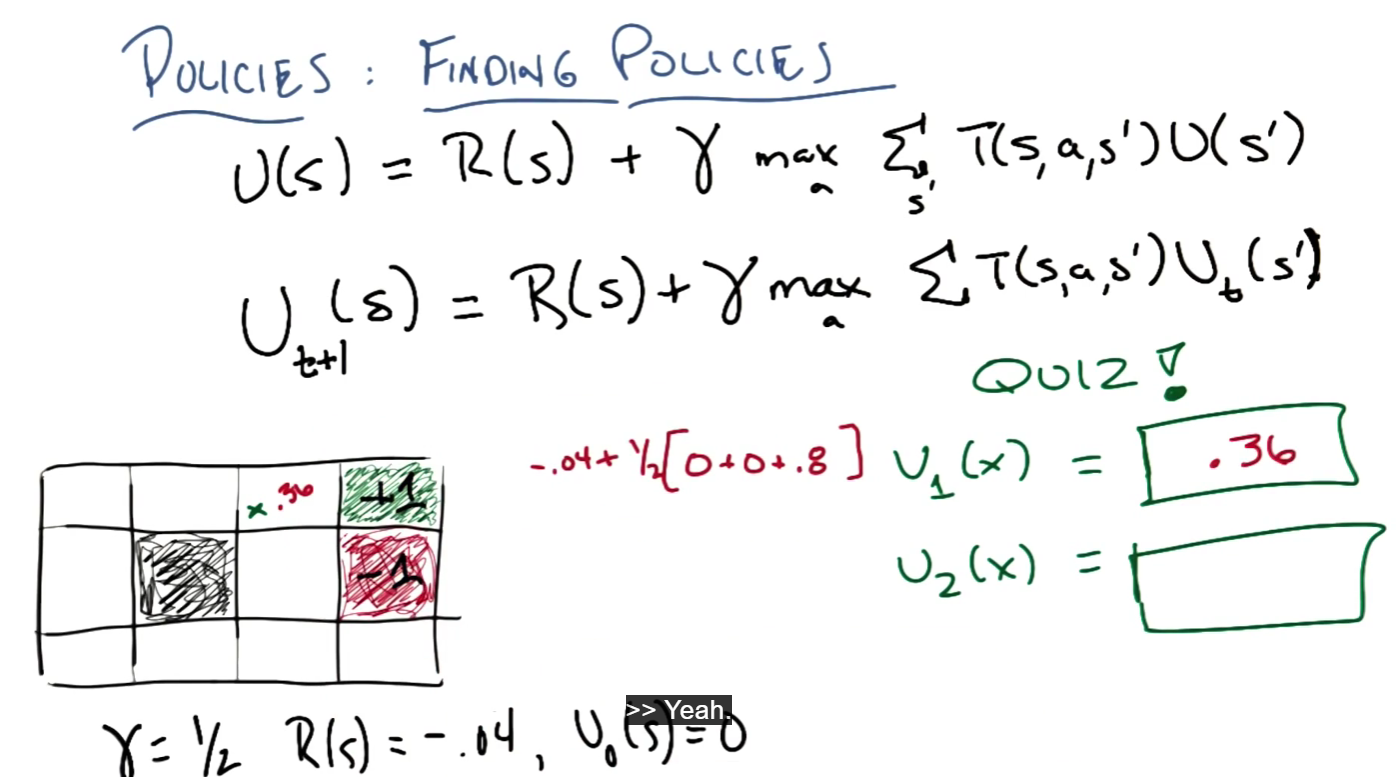 POLICIES : FINDING POLICIES
U(s) = R(s) + γ max_a Σ_s' T(s,a,s')U(s')
U_t+1(s) = R(s) + γ max_a Σ T(s,a,s')U_t(s')
QUIZ!
-.04 + 1/2[0+0+.8] U_1(x) = .36
x .36 +1
U_2(x) =
-1
>> Yeah.
γ = 1/2 R(s) = -.04, U_0(s) = 0